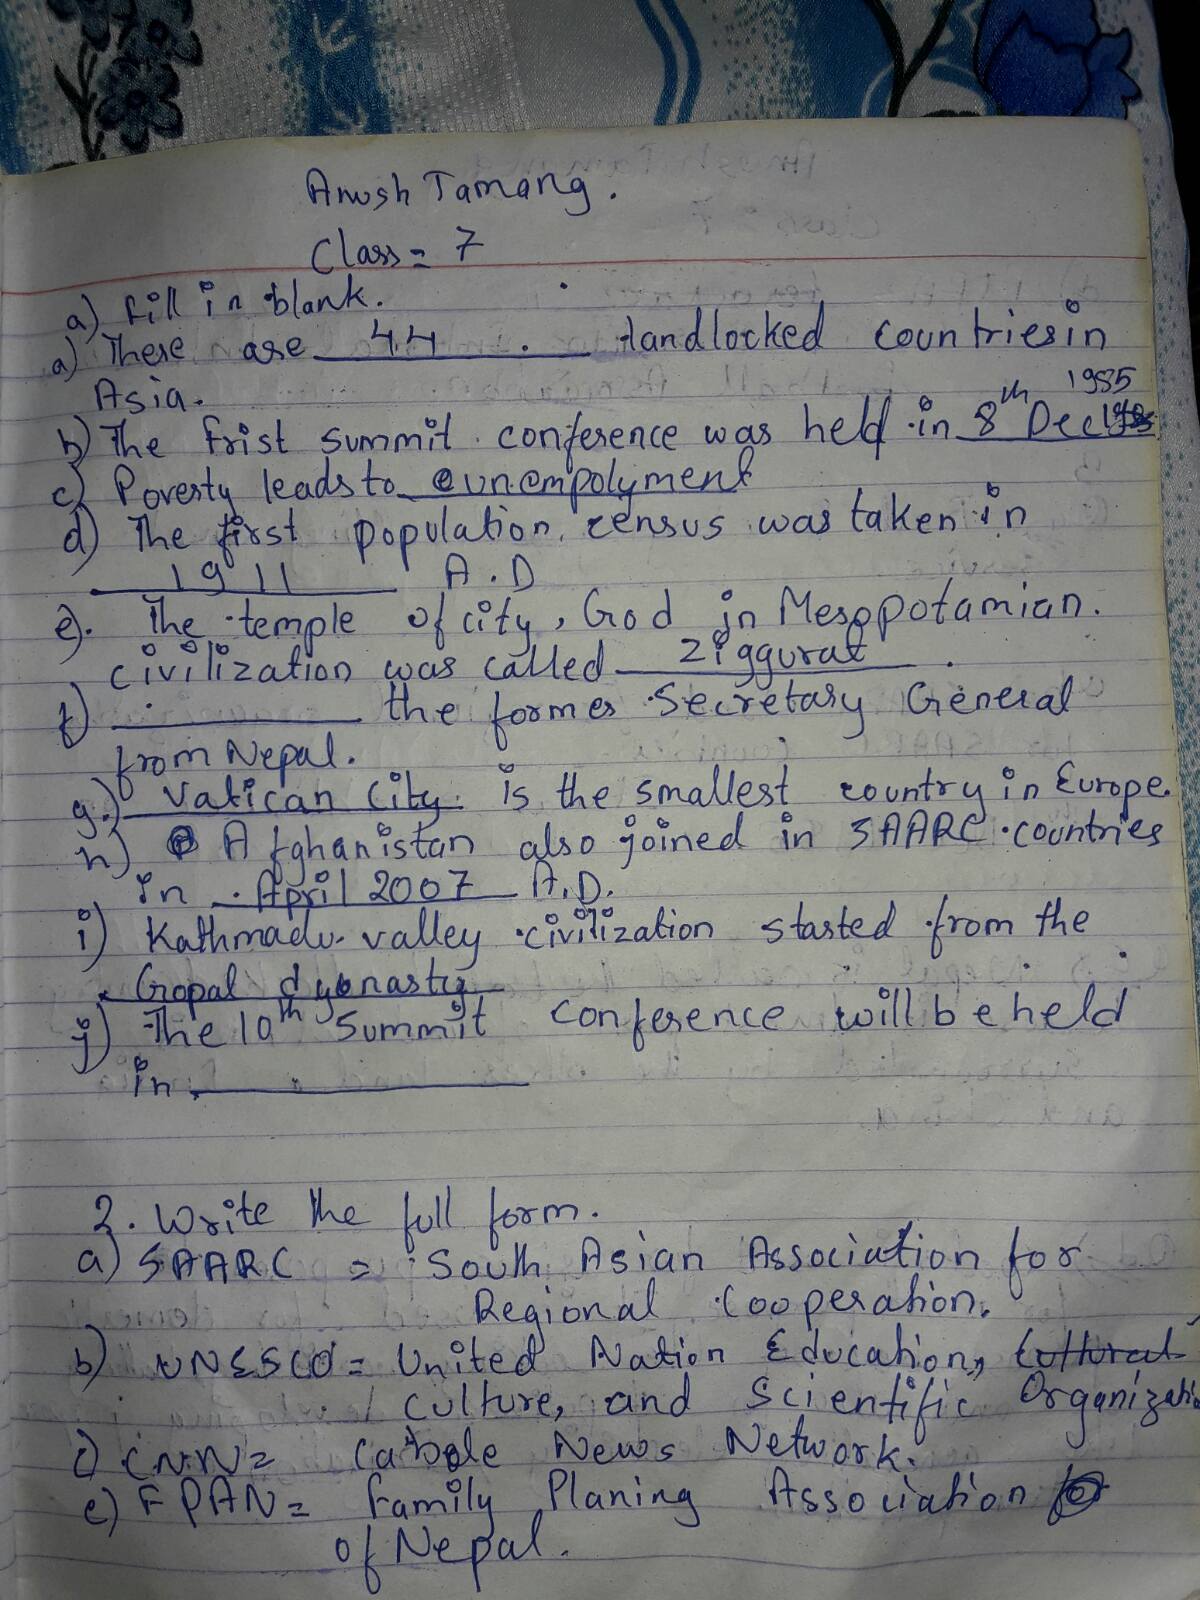 Anush Tamang.
Class = 7
a) Fill in blank.
a) There are 44 landlocked countries in
Asia.
1985
b) The Frist summit conference was held in 8th Dec
c) Poverty leads to unempolyment
d) The first population census was taken in
1911 A.D
e). The temple of city, God in Mesopotamian.
civilization was called ziggurat.
f) ______ the former Secretary General
from Nepal.
g.) Vatican City is the smallest country in Europe.
h) Afghanistan also joined in SAARC countries
in April 2007 A.D.
i) Kathmadu valley civilization started from the
Gopal dynasty
j) The 10th Summit conference will be held
in ______
2. Write the full form.
a) SAARC = South Asian Association for
Regional Cooperation.
b) UNESCO = United Nation Education, Cultural
Culture, and Scientific Organizatio
c) CNN = Cable News Network.
e) FPAN = Family Planing Association
of Nepal.